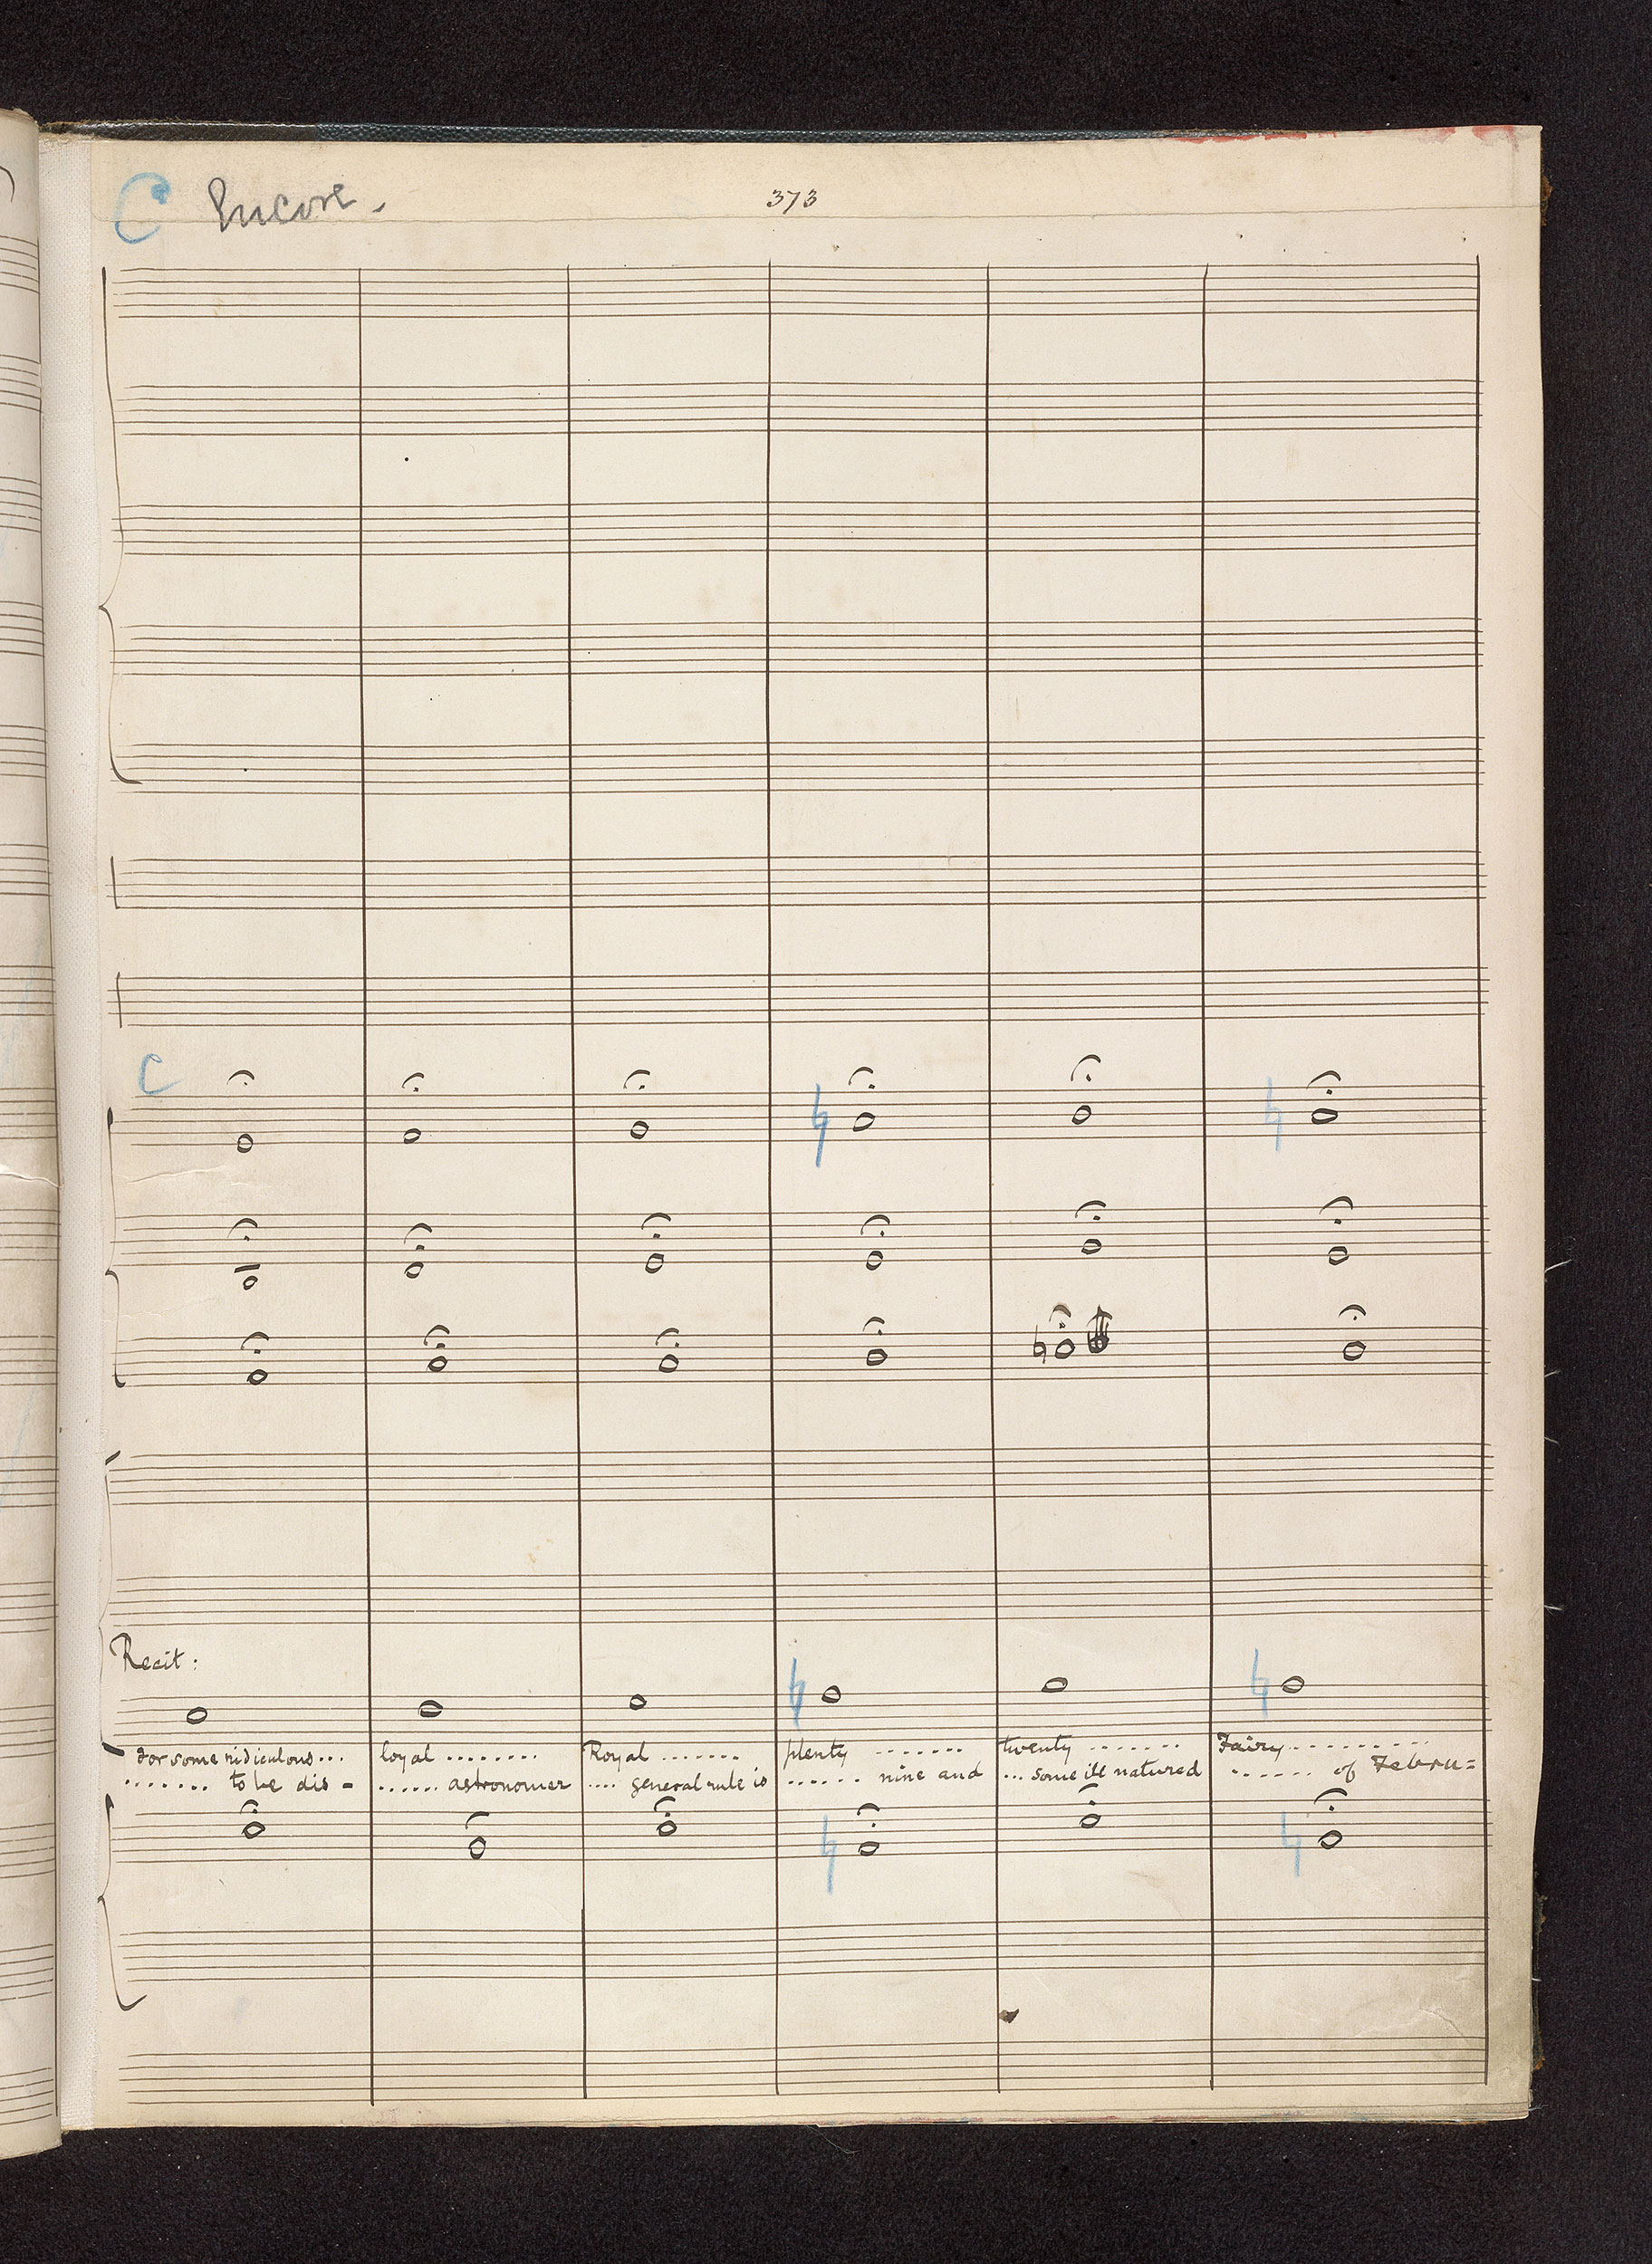 C Encore.
373
C
Recit:
for some ridiculous... loyal ........ Royal ....... plenty ....... twenty ....... Fairy ..........
....... to be dis- ...... astronomer .... general rule is ...... nine and ... some ill natured ...... of Febru=